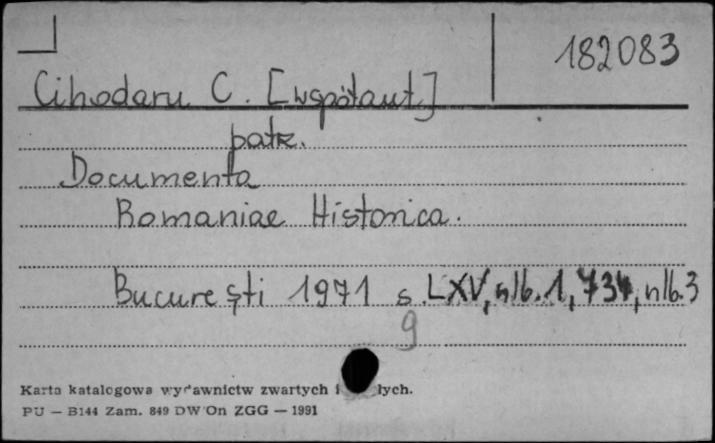 182083
Cihodaru C. [współaut.]
patrz.
Documenta
Romaniae Historica.
Bucureşti 1971 s. LXV, nlb. 1, 734, nlb. 3
g
Karta katalogowa wydawnictw zwartych i
PU — B144 Zam. 849 DW On ZGG — 1991